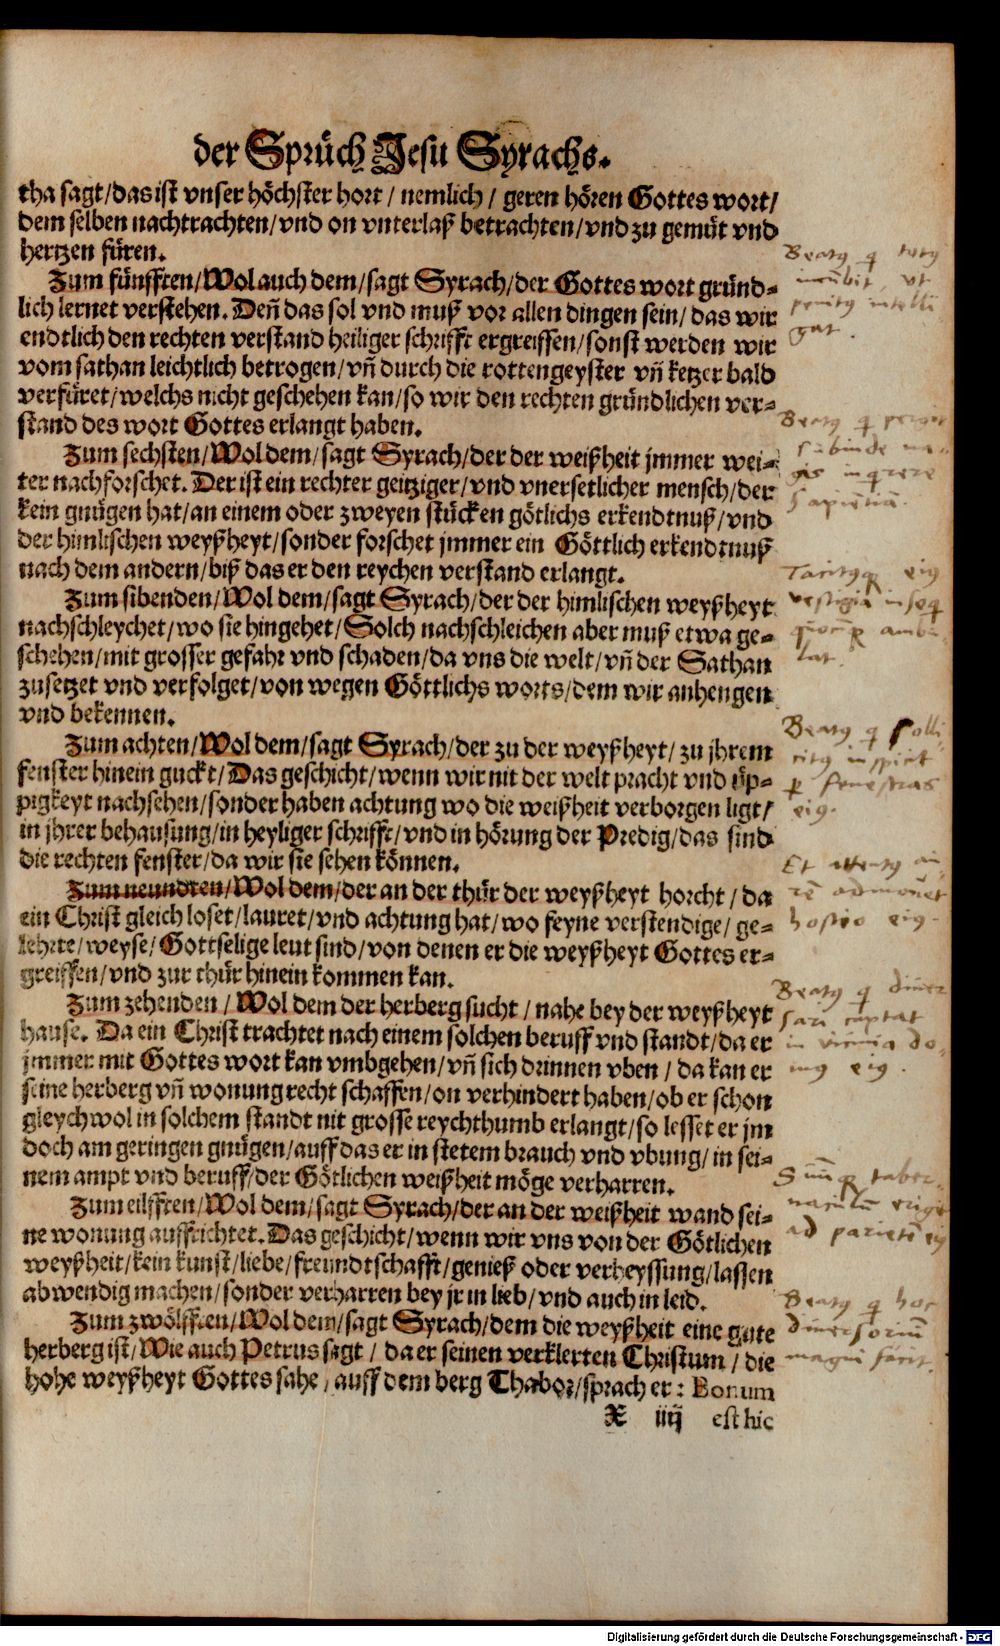 der Sprüch Jesu Syrachs.
tha sagt/das ist vnser höchster hort / nemlich / geren hören Gottes wort/
dem selben nachtrachten/vnd on vnterlaß betrachten/vnd zu gemüt vnd
hertzen füren.
Zum fünfften/Wol auch dem/sagt Syrach/der Gottes wort gründ-
lich lernet verstehen. Deñ das sol vnd muß vor allen dingen sein/das wir
endtlich den rechten verstand heiliger schrifft ergreiffen/sonst werden wir
vom sathan leichtlich betrogen/vñ durch die rottengeyster vñ ketzer bald
verfüret/welchs nicht geschehen kan/so wir den rechten gründlichen ver-
stand des wort Gottes erlangt haben.
Zum sechsten/Wol dem/sagt Syrach/der der weißheit jmmer wei-
ter nachforschet. Der ist ein rechter geitziger/vnd vnersetlicher mensch/der
kein gnügen hat/an einem oder zweyen stücken götlichs erkendtnuß/vnd
der himlischen weyßheyt/sonder forschet jmmer ein Göttlich erkendtnuß
nach dem andern/biß das er den reychen verstand erlangt.
Zum sibenden/Wol dem/sagt Syrach/der der himlischen weyßheyt
nachschleychet/wo sie hingehet/Solch nachschleichen aber muß etwa ge-
schehen/mit grosser gefahr vnd schaden/da vns die welt/vñ der Sathan
zusetzet vnd verfolget/von wegen Göttlichs worts/dem wir anhengen
vnd bekennen.
Zum achten/Wol dem/sagt Syrach/der zu der weyßheyt/zu jhrem
fenster hinein guckt/Das geschicht/wenn wir nit der welt pracht vnd üp-
pigkeyt nachsehen/sonder haben achtung wo die weißheit verborgen ligt/
in jhrer behausung/in heyliger schrifft/vnd in hörung der Predig/das sind
die rechten fenster/da wir sie sehen können.
Zum neundten/Wol dem/der an der thür der weyßheyt horcht / da
ein Christ gleich loset/lauret/vnd achtung hat/wo feyne verstendige/ge-
lehrte/weyse/Gottselige leut sind/von denen er die weyßheyt Gottes er-
greiffen/vnd zur thür hinein kommen kan.
Zum zehenden / Wol dem der herberg sucht / nahe bey der weyßheyt
hause. Da ein Christ trachtet nach einem solchen beruff vnd standt/da er
jmmer mit Gottes wort kan vmbgehen/vñ sich drinnen vben / da kan er
seine herberg vñ wonung recht schaffen/on verhindert haben/ob er schon
gleychwol in solchem standt nit grosse reychthumb erlangt/so lesset er jm
doch am geringen gnügen/auff das er in stetem brauch vnd vbung/in sei-
nem ampt vnd beruff/der Götlichen weißheit möge verharren.
Zum eilfften/Wol dem/sagt Syrach/der an der weißheit wand sei-
ne wonung auffrichtet. Das geschicht/wenn wir vns von der Götlichen
weyßheit/kein kunst/liebe/freundtschafft/genieß oder verheyssung/lassen
abwendig machen/sonder verharren bey jr in lieb/vnd auch in leid.
Zum zwölfften/Wol dem/sagt Syrach/dem die weyßheit eine gute
herberg ist/Wie auch Petrus sagt / da er seinen verklerten Christum / die
hohe weyßheyt Gottes sahe / auff dem berg Thabor/sprach er: Bonum
X iiij est hic
Beatꝯ q
penitꝯ intelli
gat.
Beatꝯ q
Sapiẽtiã.
lat.
Beatꝯ q solli-
citꝯ inspicit
p fenestras
eiꝯ.
hostio eiꝯ.
Beatꝯ q diuer
sari captat
in vicinia do-
mꝯ eiꝯ.
ad parietẽ eiꝯ
Beatꝯ q hoc
diuersoriũ
Digitalisierung gefördert durch die Deutsche Forschungsgemeinschaft - DFG